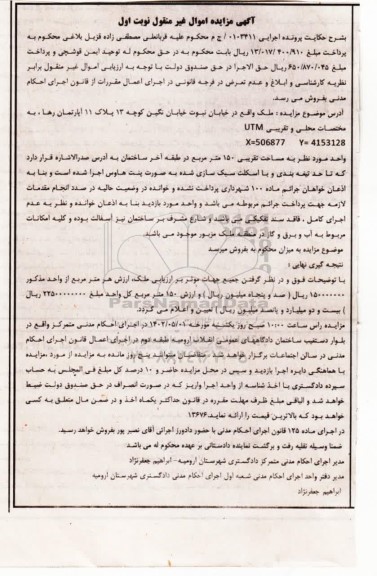 آگهی مزایده اموال غیر منقول نوبت اول
بشرح حکایت پرونده اجرایی ۰۱۰۳۴۱۱ / ج م محکوم علیه قربانعلی مصطفی زاده قزیل بلاغی محکوم به
پرداخت مبلغ ۱۳/۰۱۷/۴۰۰/۹۱۰ ریال بابت محکوم به در حق محکوم له توحید ایمن قوشچی و پرداخت
مبلغ ۶۵۰/۸۷۰/۰۴۵ ریال حق الاجرا در حق صندوق دولت با توجه به ارزیابی اموال غیر منقول برابر
نظریه کارشناسی و ابلاغ و عدم تعرض در فرجه قانونی در اجرای اعمال مقررات از قانون اجرای احکام
مدنی بفروش می رسد.
آدرس موضوع مزایده : ملک واقع در خیابان نبوت خیابان نگین کوچه ۱۳ پلاک ۱۱ آپارتمان رها ، به
مختصات محلی و تقریبی UTM
X=506877 Y= 4153128
واحد مورد نظر به مساحت تقریبی ۱۵۰ متر مربع در طبقه آخر ساختمان به آدرس صدرالاشاره قرار دارد
که تا حد تیغه بندی و با اسکلت سبک سازی شده به صورت پنت هاوس اجرا شده است و بنا به
اذعان خواهان جرائم ماده ۱۰۰ شهرداری پرداخت نشده و خوانده در وضعیت حالیه در صدد انجام مقدمات
لازمه جهت پرداخت جرائم مربوطه می باشد و واحد مورد بازدید بنا به اذعان خوانده و نظر به عدم
اجرای کامل ، فاقد سند تفکیکی می باشد و شارع مشرف بر ساختمان نیز آسفالت بوده و کلیه امکانات
مربوط به آب و برق و گاز در منطقه ملک مزبور موجود می باشد.
موضوع مزایده به میزان محکوم به فروش میرسد
نتیجه گیری نهایی :
با توضیحات فوق و در نظر گرفتن جمیع جهات موثر بر ارزیابی ملک، ارزش هر متر مربع از واحد مذکور
۱۵۰۰۰۰۰۰۰ ریال ( صد و پنجاه میلیون ریال ) و ارزش ۱۵۰ متر مربع کل واحد مبلغ ۲۲۵۰۰۰۰۰۰۰۰ ریال
( بیست و دو میلیارد و پانصد میلیون ریال ) تعیین و اعلام می گردد
مزایده راس ساعت ۱۰:۰۰ صبح روز یکشنبه مورخه ۱۴۰۲/۰۵/۰۱ در اجرای احکام مدنی متمرکز واقع در
بلوار دستغیب ساختمان دادگاههای عمومی انقلاب ارومیه طبقه دوم در اجرای اعمال قانون اجرای احکام
مدنی در سالن اجتماعات برگزار خواهد شد . متقاضیان میتوانند پنج روز مانده به مزایده از مورد مزایده
با هماهنگی دایره اجرا بازدید و سپس در محل مزایده حاضر و ۱۰ درصد کل مبلغ فی المجلس به حساب
سپرده دادگستری با اخذ شناسه از واحد اجرا واریز که در صورت انصراف در حق صندوق دولت ضبط
خواهد شد و الباقی مبلغ ظرف مهلت مقرره در قانون حداکثر یکماه اخذ و در ضمن مال متعلق به کسی
خواهد بود که بالاترین قیمت را ارائه نماید.۱۳۶۷۶
در اجرای ماده ۱۲۵ قانون اجرای احکام مدنی با حضور دادورز اجرائی آقای نصیر پور بفروش خواهد رسید.
ضمنا وسیله نقلیه رفت و برگشت نماینده دادستانی بر عهده محکوم له می باشد
مدیر اجرای احکام مدنی متمرکز دادگستری شهرستان ارومیه - ابراهیم جعفرنژاد
مدیر دفتر واحد اجرای احکام مدنی شعبه اول اجرای احکام مدنی دادگستری شهرستان ارومیه
ابراهیم جعفرنژاد